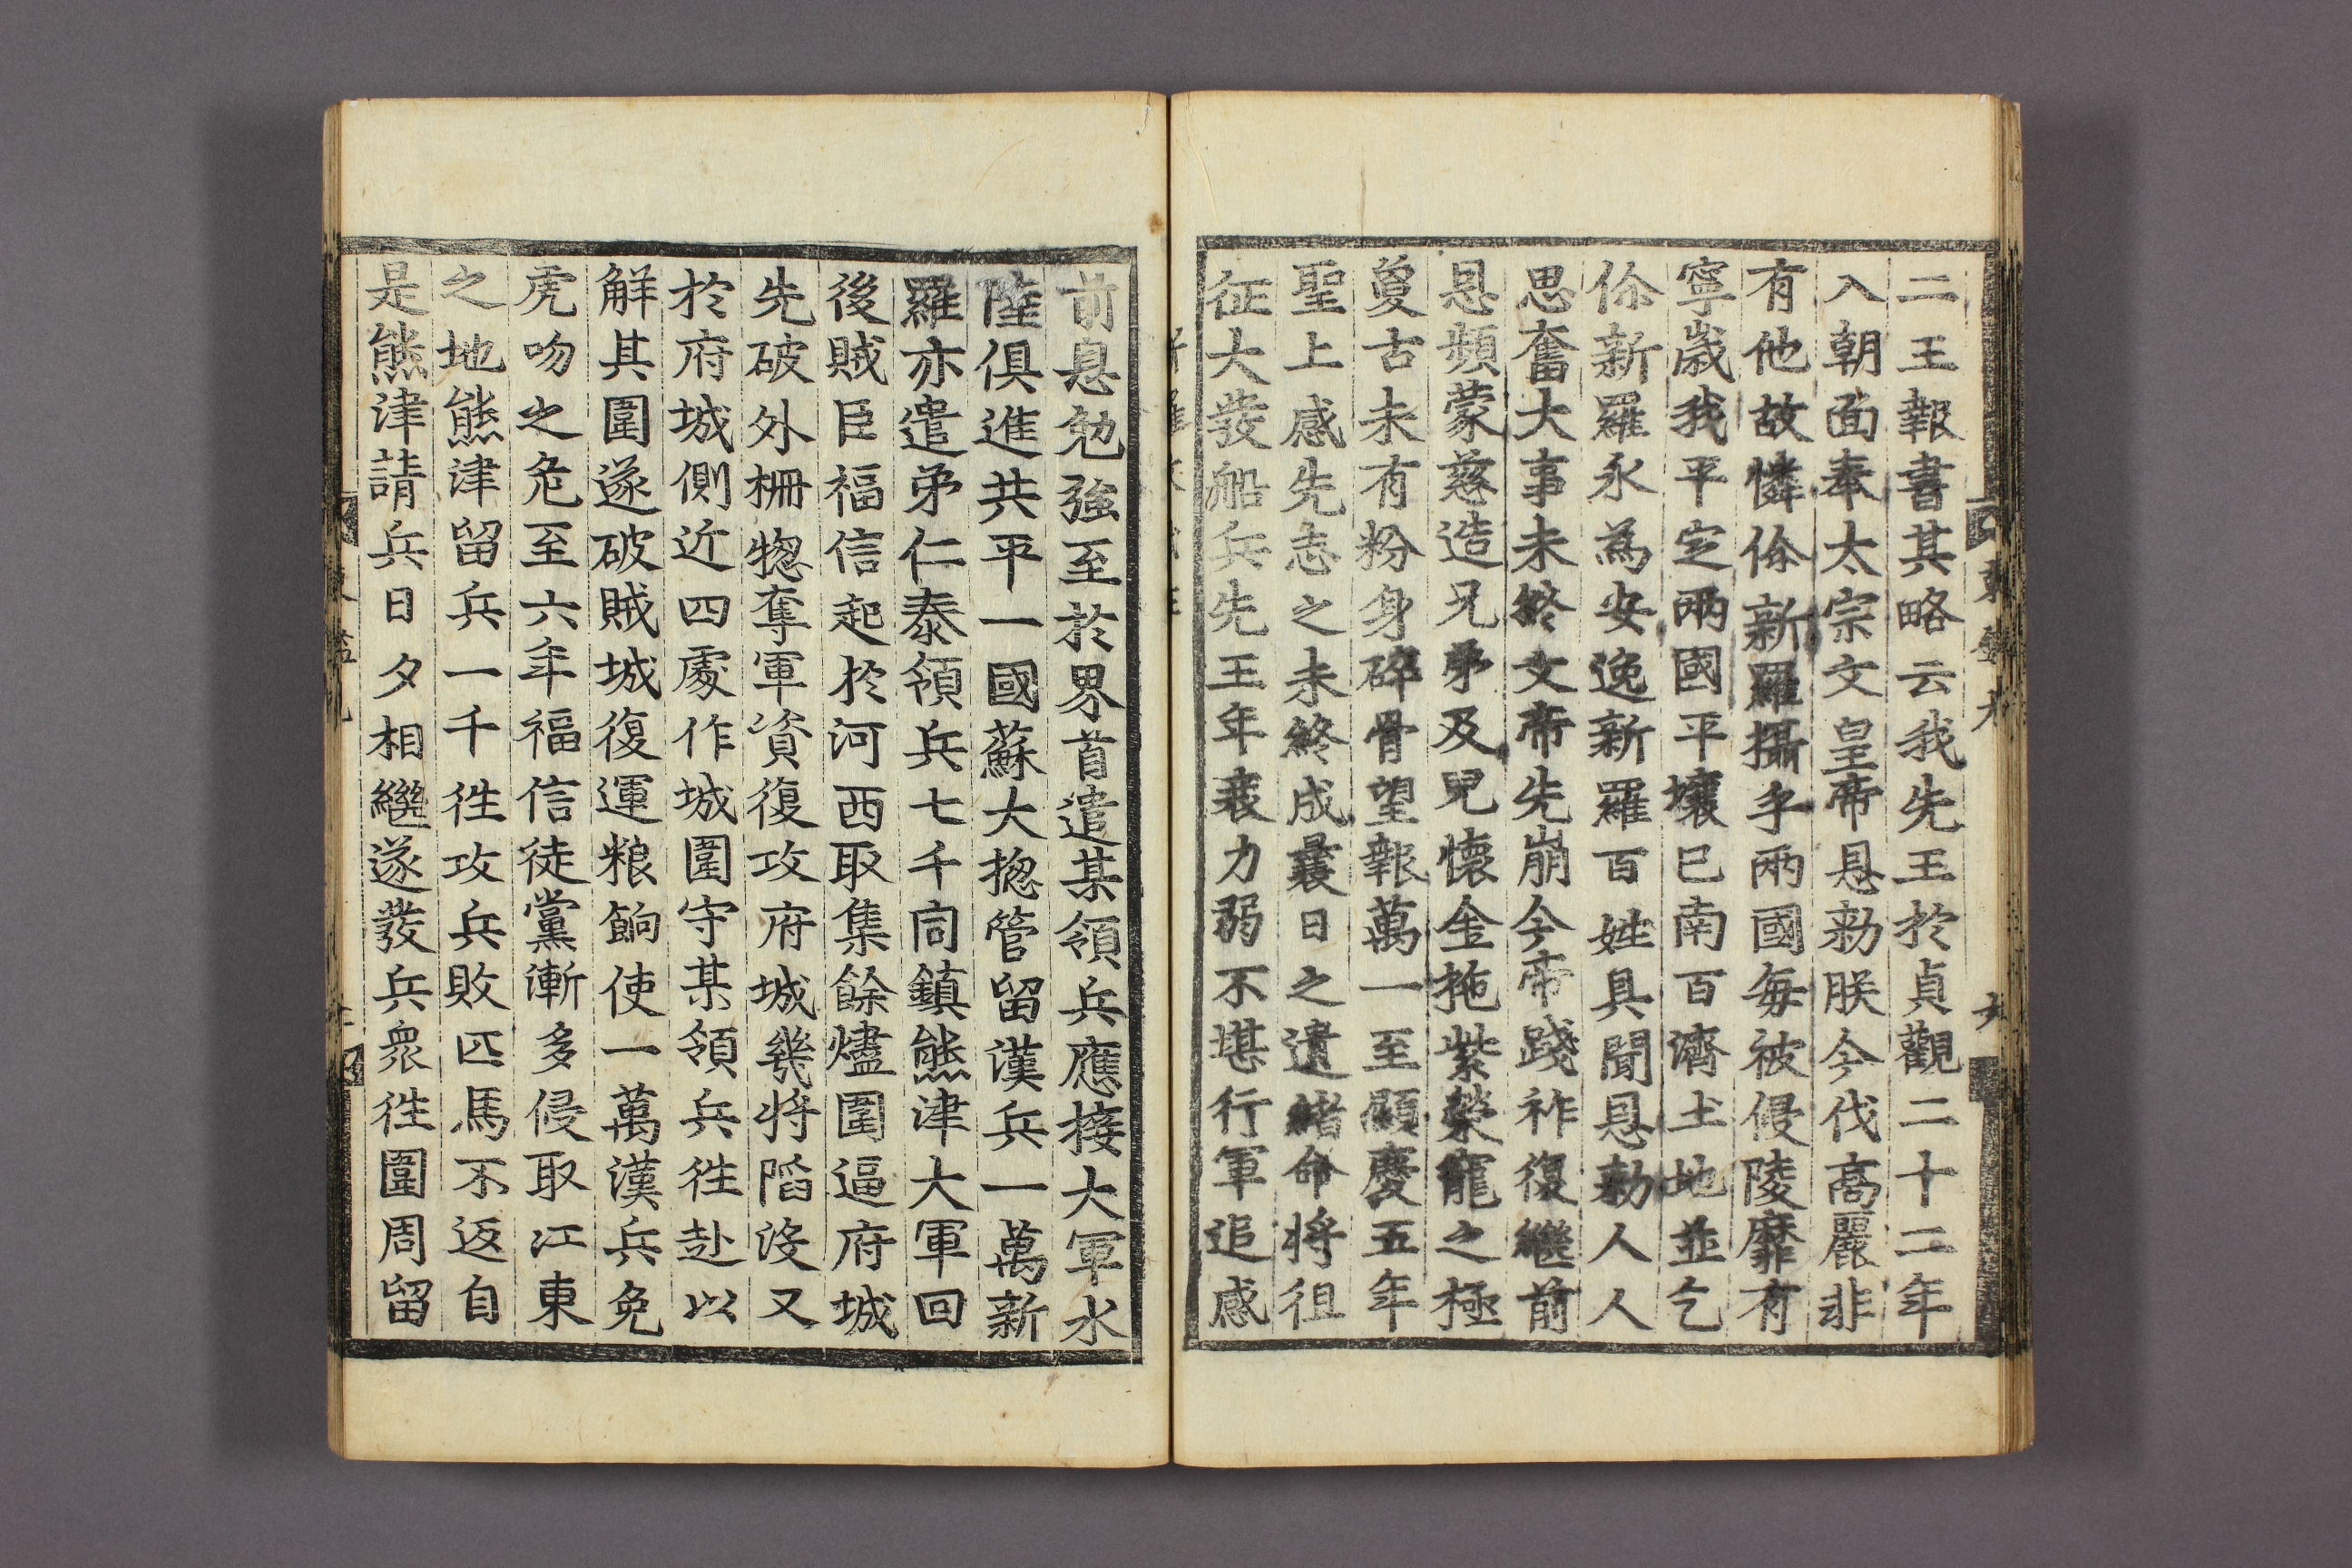 二王報書其略云我先王於貞觀二十二年
入朝面奉太宗文皇帝恩勑朕今伐高麗非
有他故憐伱新羅攝乎兩國每被侵陵靡有
寧歲我平定兩國平壤已南百濟土地並乞
伱新羅永爲安逸新羅百姓具聞恩勑人人
思奮大事未終文帝先崩今帝踐祚復繼前
恩頻蒙慈造兄弟及兒懷金拖紫榮寵之極
敻古未有粉身碎骨望報萬一至顯慶五年
聖上感先志之未終成曩日之遺緖命將徂
征大發船兵先王年衰力弱不堪行軍追感
前恩勉強至於界首遣某領兵應接大軍水
陸俱進共平一國蘇大摠管留漢兵一萬新
羅亦遣弟仁泰領兵七千同鎭熊津大軍回
後賊臣福信起於河西取集餘燼圍逼府城
先破外柵揔奪軍資復攻府城幾將陷沒又
於府城側近四處作城圍守某領兵徃赴以
解其圍遂破賊城復運粮餉使一萬漢兵免
虎吻之危至六年福信徒黨漸多侵取江東
之地熊津留兵一千徃攻兵敗匹馬不返自
是熊津請兵日夕相繼遂發兵衆徃圍周留